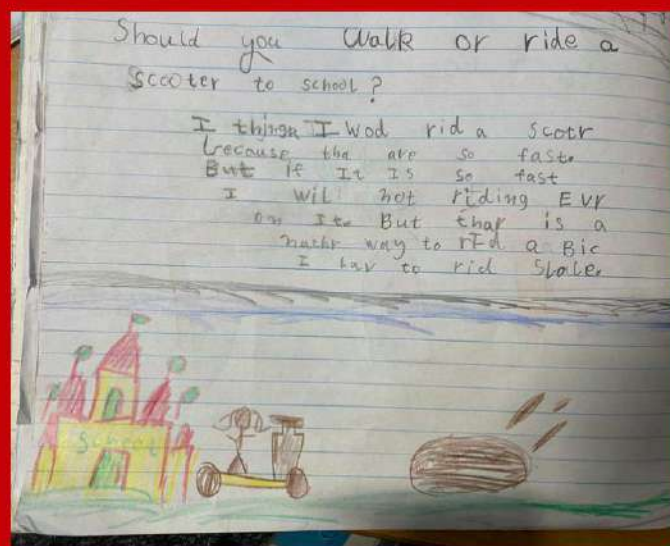 Should you Walk or ride a
Sccoter to school?
I thingn I wod rid a scotr
because tha are so fast.
But if It IS so fast
I wil not riding Evr
on It. But thar is a
nathr way to rId a Bic
I lav to rid Slole.
School